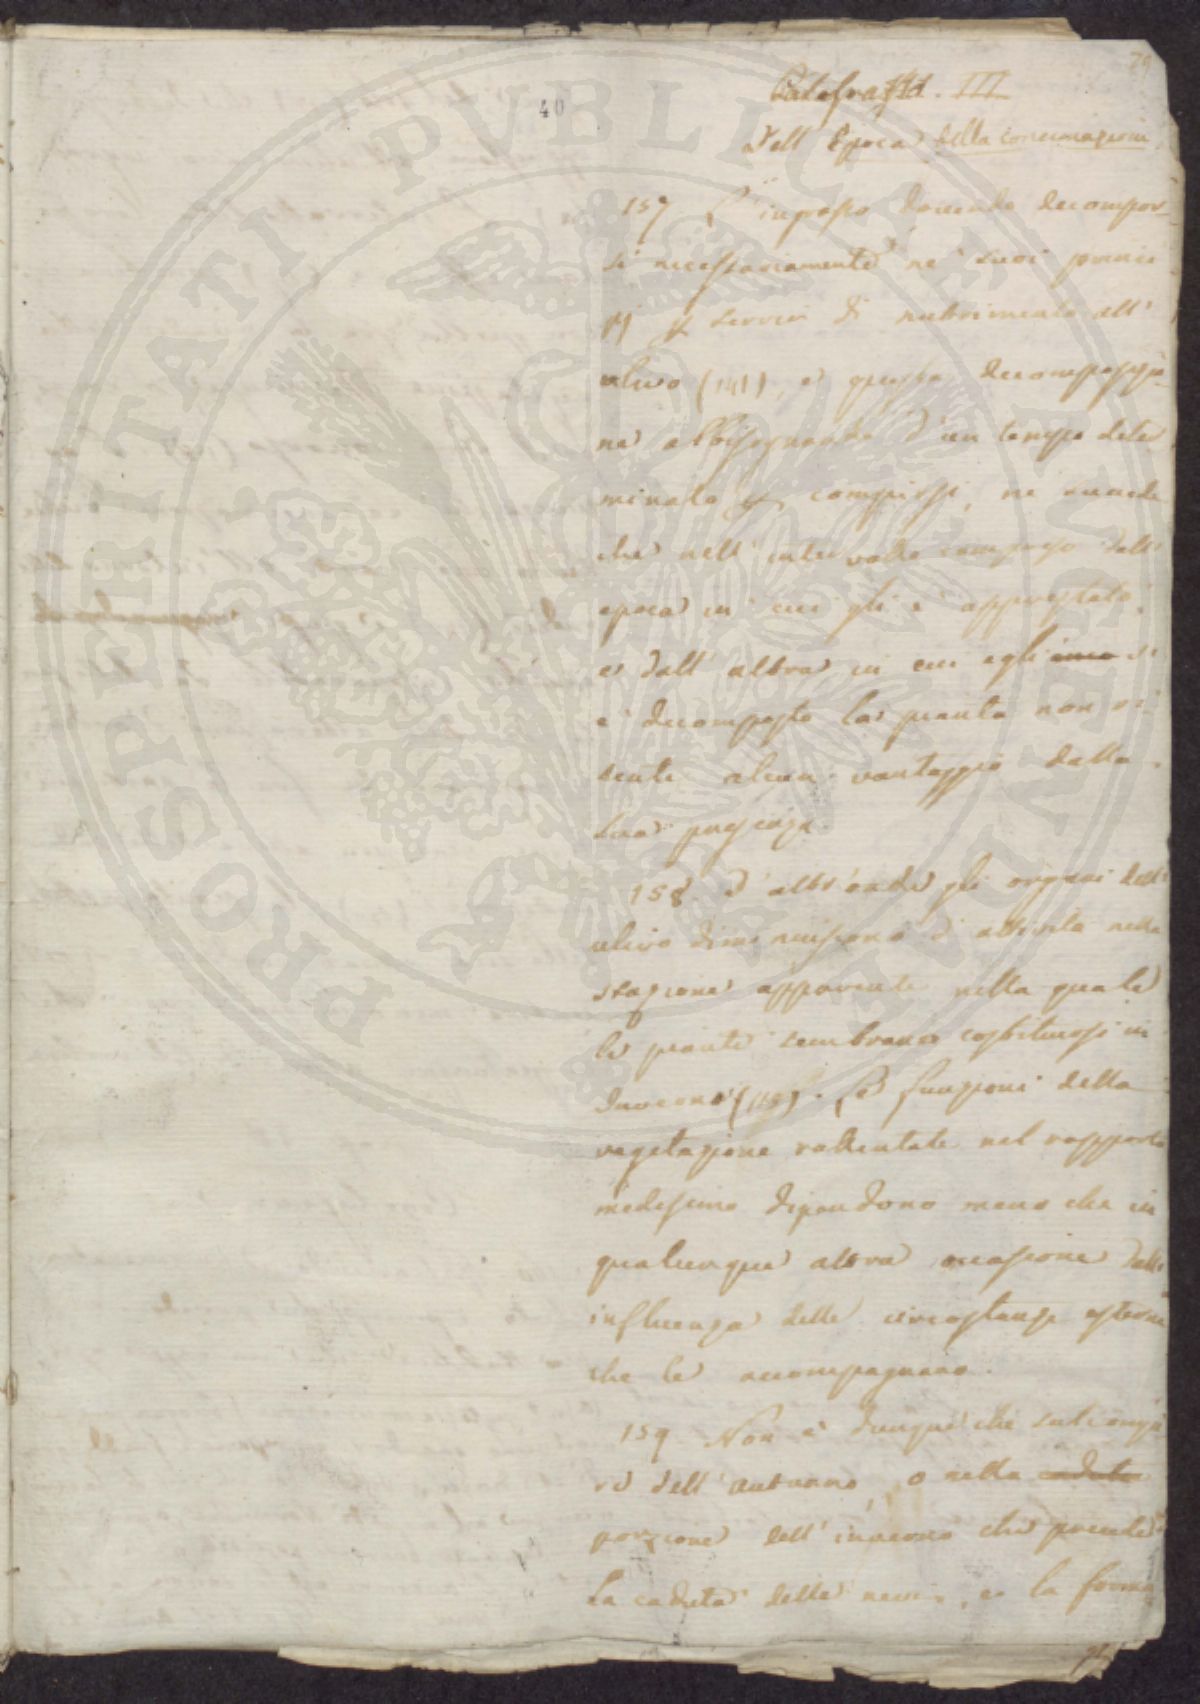 79
40
III
Dell' Epoca della concimazione
157 L'ingrasso dovendo decompor-
si necessariamente ne' suoi princi
pj p servir di nutrimento all'
ulivo (141), e questa decomposizio-
ne abbisognando d'un tempo deter
minato p compirsi, ne succede
che nell' intervallo compreso dall'
epoca in cui gli è apprestato,
e dall' altra in cui egli si
è decomposto la pianta non ri
sente alcun vantaggio dalla
sua presenza.
158. D'altronde gli organi dell'
ulivo diminuiscono d'attività nella
stagione nella quale
le piante sembrano costituirsi in
Inverno (118). Le funzioni della
vegetazione rallentate nel rapporto
medesimo dipendono meno che in
qualunque altra occasione dalla
influenza delle circostanze esterne
che le accompagnano.
159 Non è dunque che sul comin
re dell' autunno, o nella caduta
porzione dell' inverno che precede
la caduta delle nevi, e la forma
PROSPERITATI PUBLICAE AUGENDAE